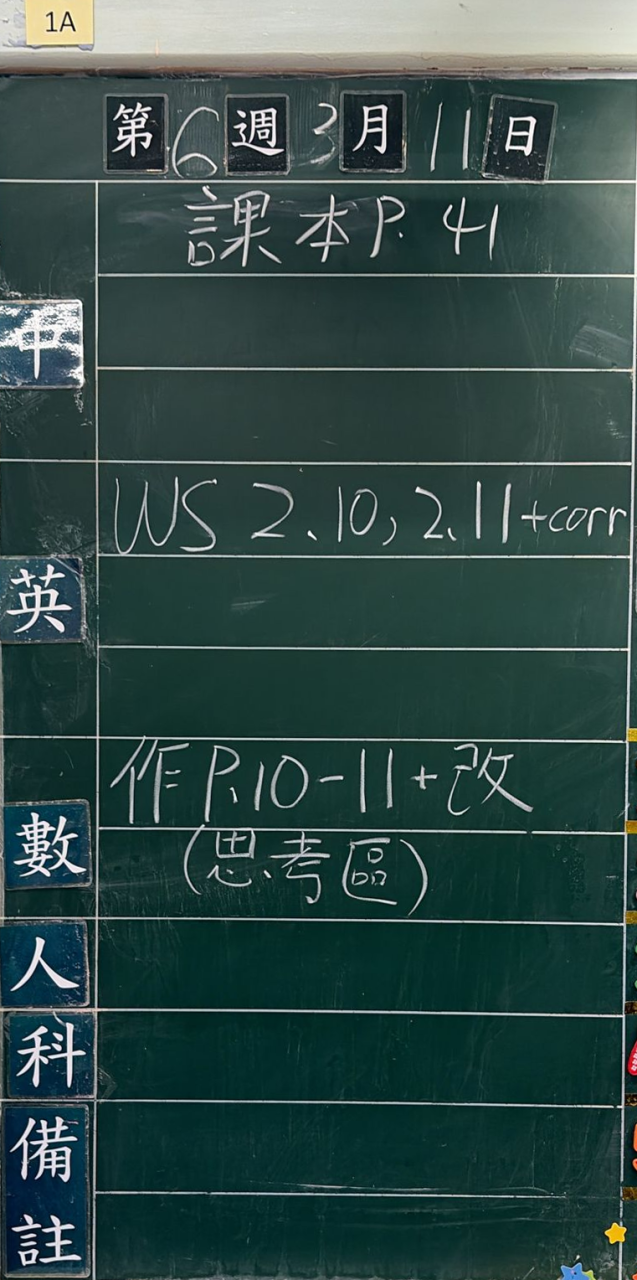 1A
第6週3月11日
課本P.41
中
WS 2.10, 2.11+corr
英
作P.10-11+改
數
(思考區)
人
科
備
註